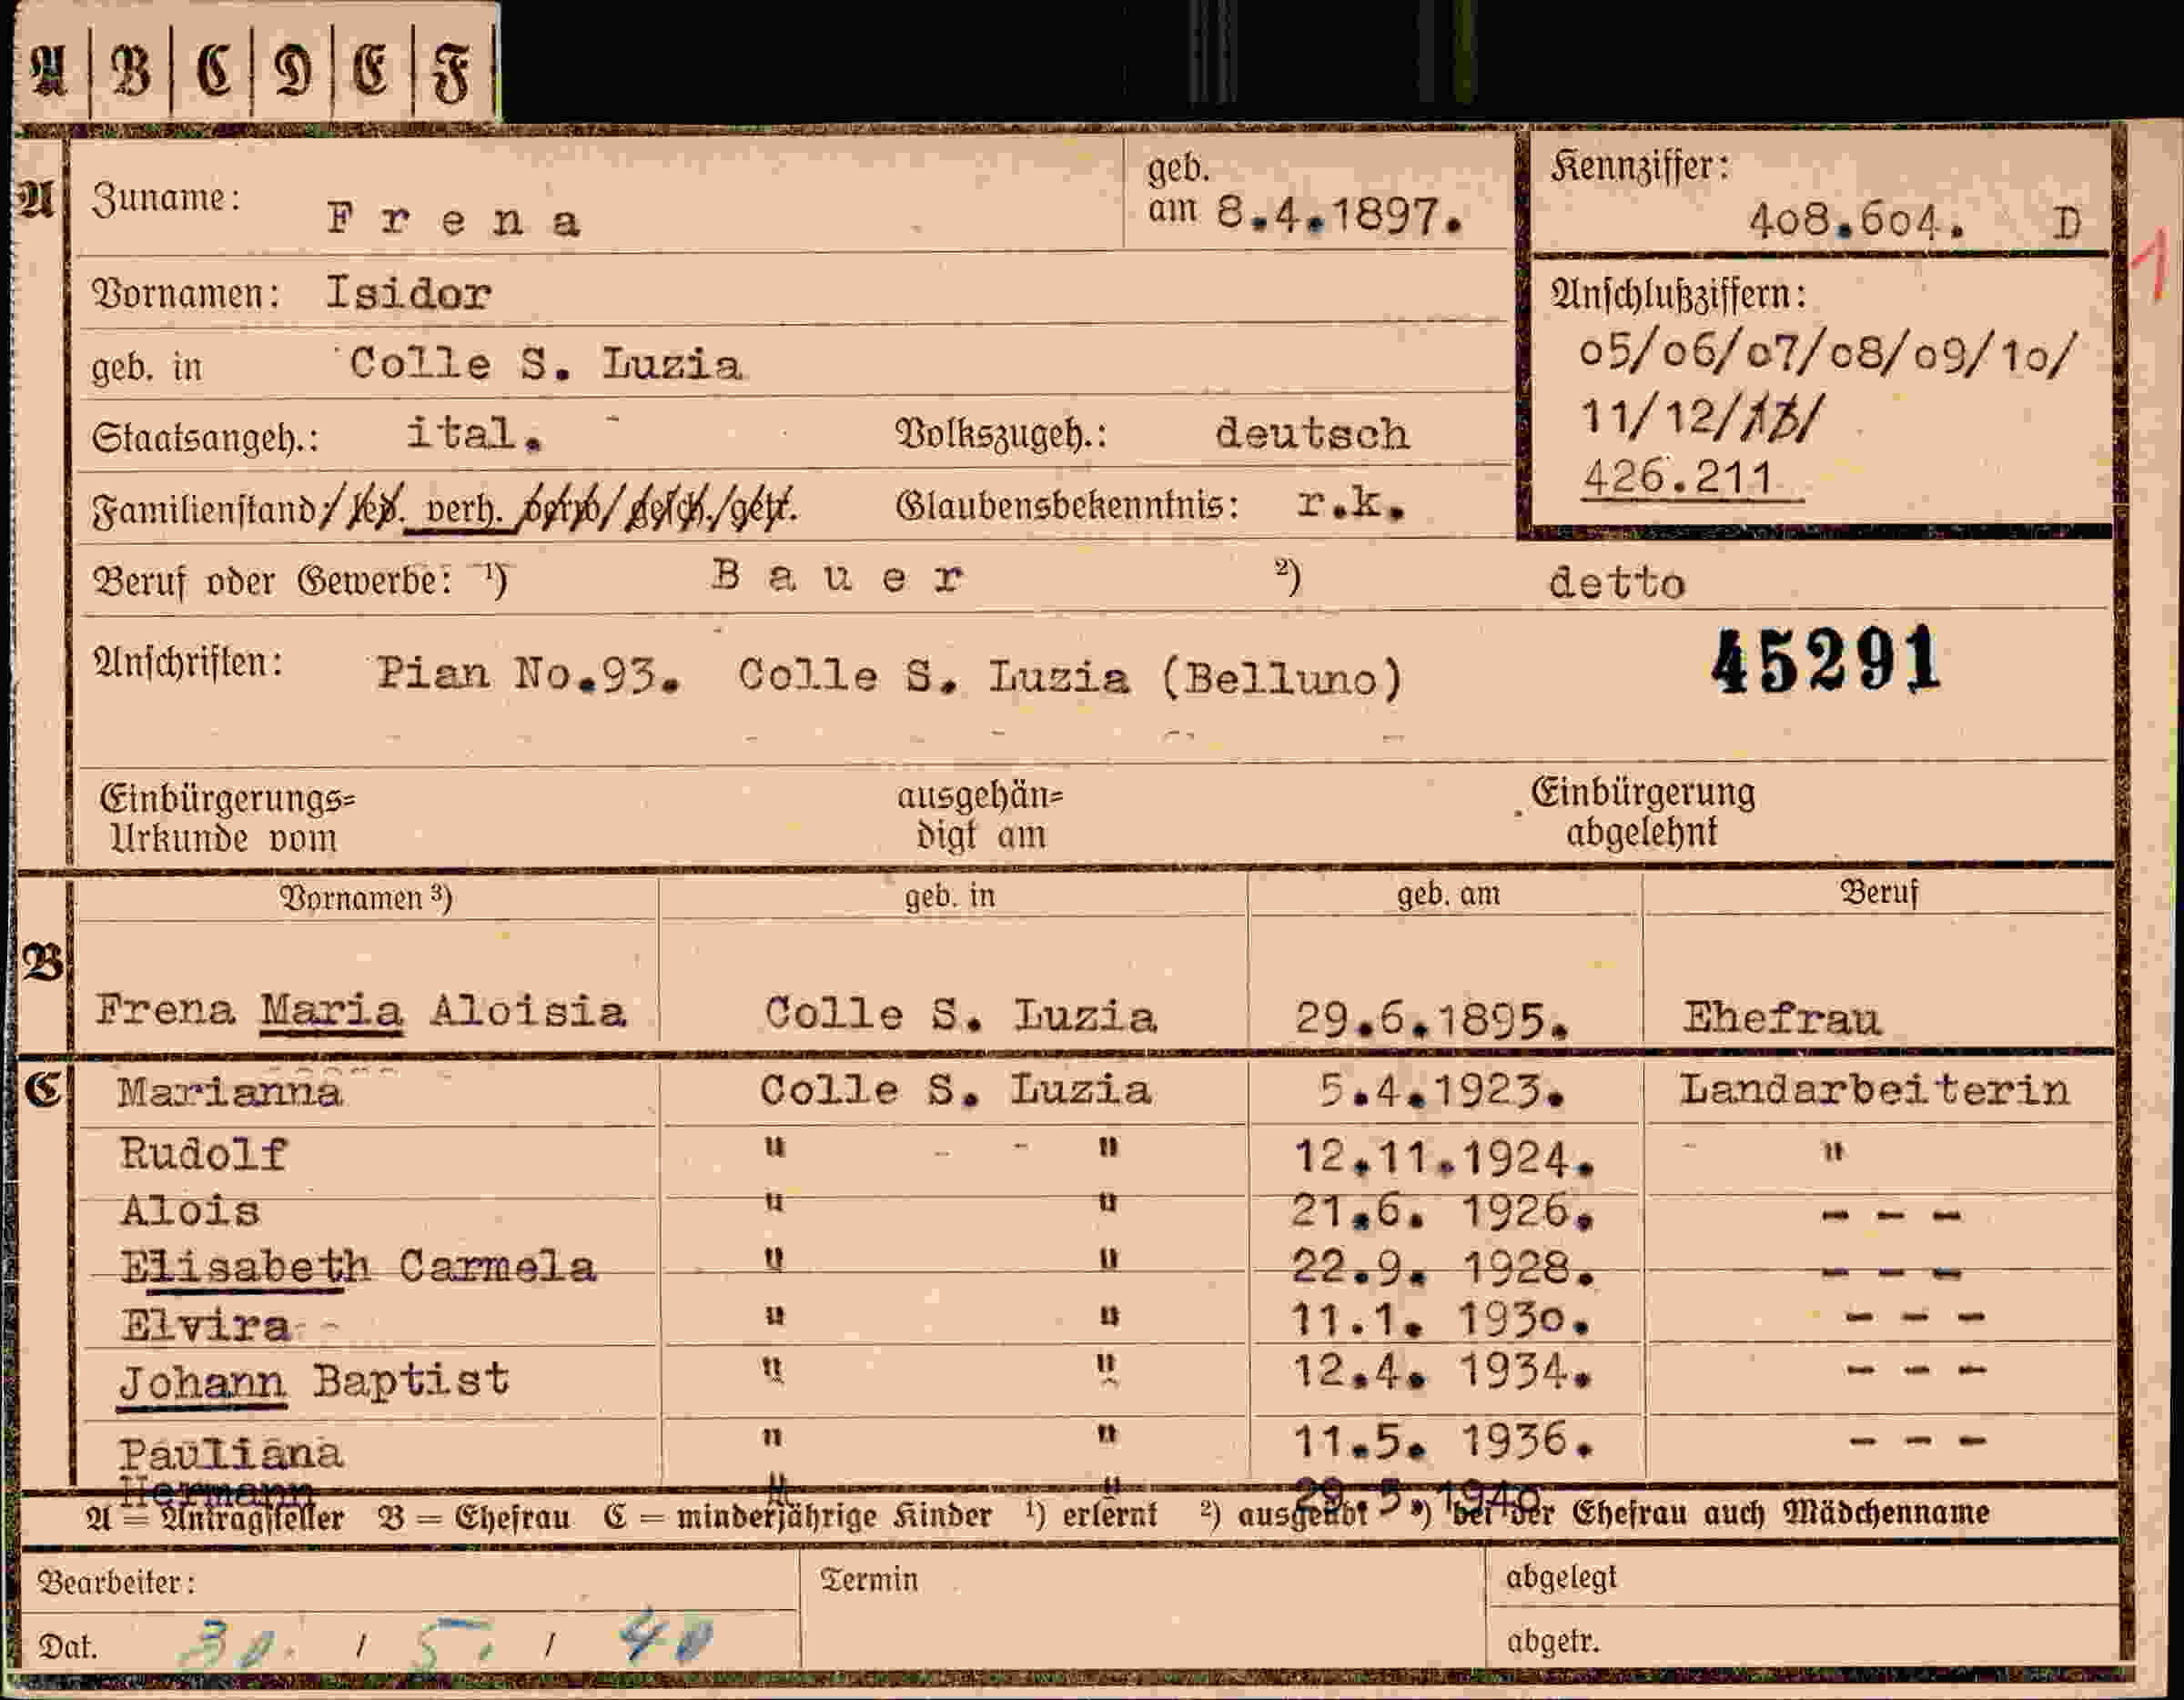 A | B | C | D | E | F
A
Zuname: Frena
geb. am 8.4.1897.
Kennziffer: 408.604. D
1
Vornamen: Isidor
Anschlußziffern:
05/06/07/08/09/10/
11/12/13/
426.211
geb. in Colle S. Luzia
Staatsangeh.: ital. Volkszugeh.: deutsch
Familienstand:/led. verh. verw/gesch./getr. Glaubensbekenntnis: r.k.
Beruf oder Gewerbe: ¹) Bauer ²) detto
Anschriften: Pian No.93. Colle S. Luzia (Belluno) 45291
Einbürgerungs=
Urkunde vom
ausgehän=
digt am
Einbürgerung
abgelehnt
Vornamen ³) geb. in geb. am Beruf
B
Frena Maria Aloisia Colle S. Luzia 29.6.1895. Ehefrau
C Marianna Colle S. Luzia 5.4.1923. Landarbeiterin
Rudolf " " 12.11.1924. "
Alois " " 21.6. 1926. - - -
Elisabeth Carmela " " 22.9. 1928. - - -
Elvira " " 11.1. 1930. - - -
Johann Baptist " " 12.4. 1934. - - -
Pauliana " " 11.5. 1936. - - -
Hermann " " 29.5. 1940
A = Antragsteller B = Ehefrau C = minderjährige Kinder ¹) erlernt ²) ausgeübt ³) bei der Ehefrau auch Mädchenname
Bearbeiter: Termin abgelegt
Dat. 30. / 5. / 40 abgetr.